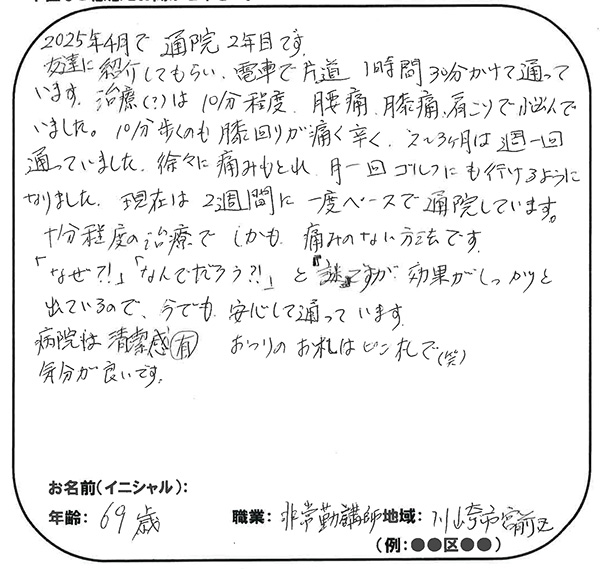 2025年4月で 通院 2年目です。
友達に 紹介してもらい、電車で片道 1時間30分かけて通って
います。治療(?)は 10分程度。腰痛、膝痛、肩こりで悩んで
いました。10分歩くのも 膝回りが痛く辛く、2~3ヶ月は週一回
通っていました。徐々に痛みもとれ、月一回 ゴルフにも行けるように
なりました。現在は 2週間に 一度ペースで通院しています。
十分程度の治療で しかも 痛みのない方法です。
「なぜ?!」「なんでだろう?!」 と『謎』ですが 効果がしっかりと
出ているので、今でも 安心して通って います。
病院は 清潔感(有) おつりの お札は ピン札で(笑)
気分が良いです。
お名前(イニシャル):
年齢: 69歳 職業: 非常勤講師 地域: 川崎市宮前区
(例:●●区●●)